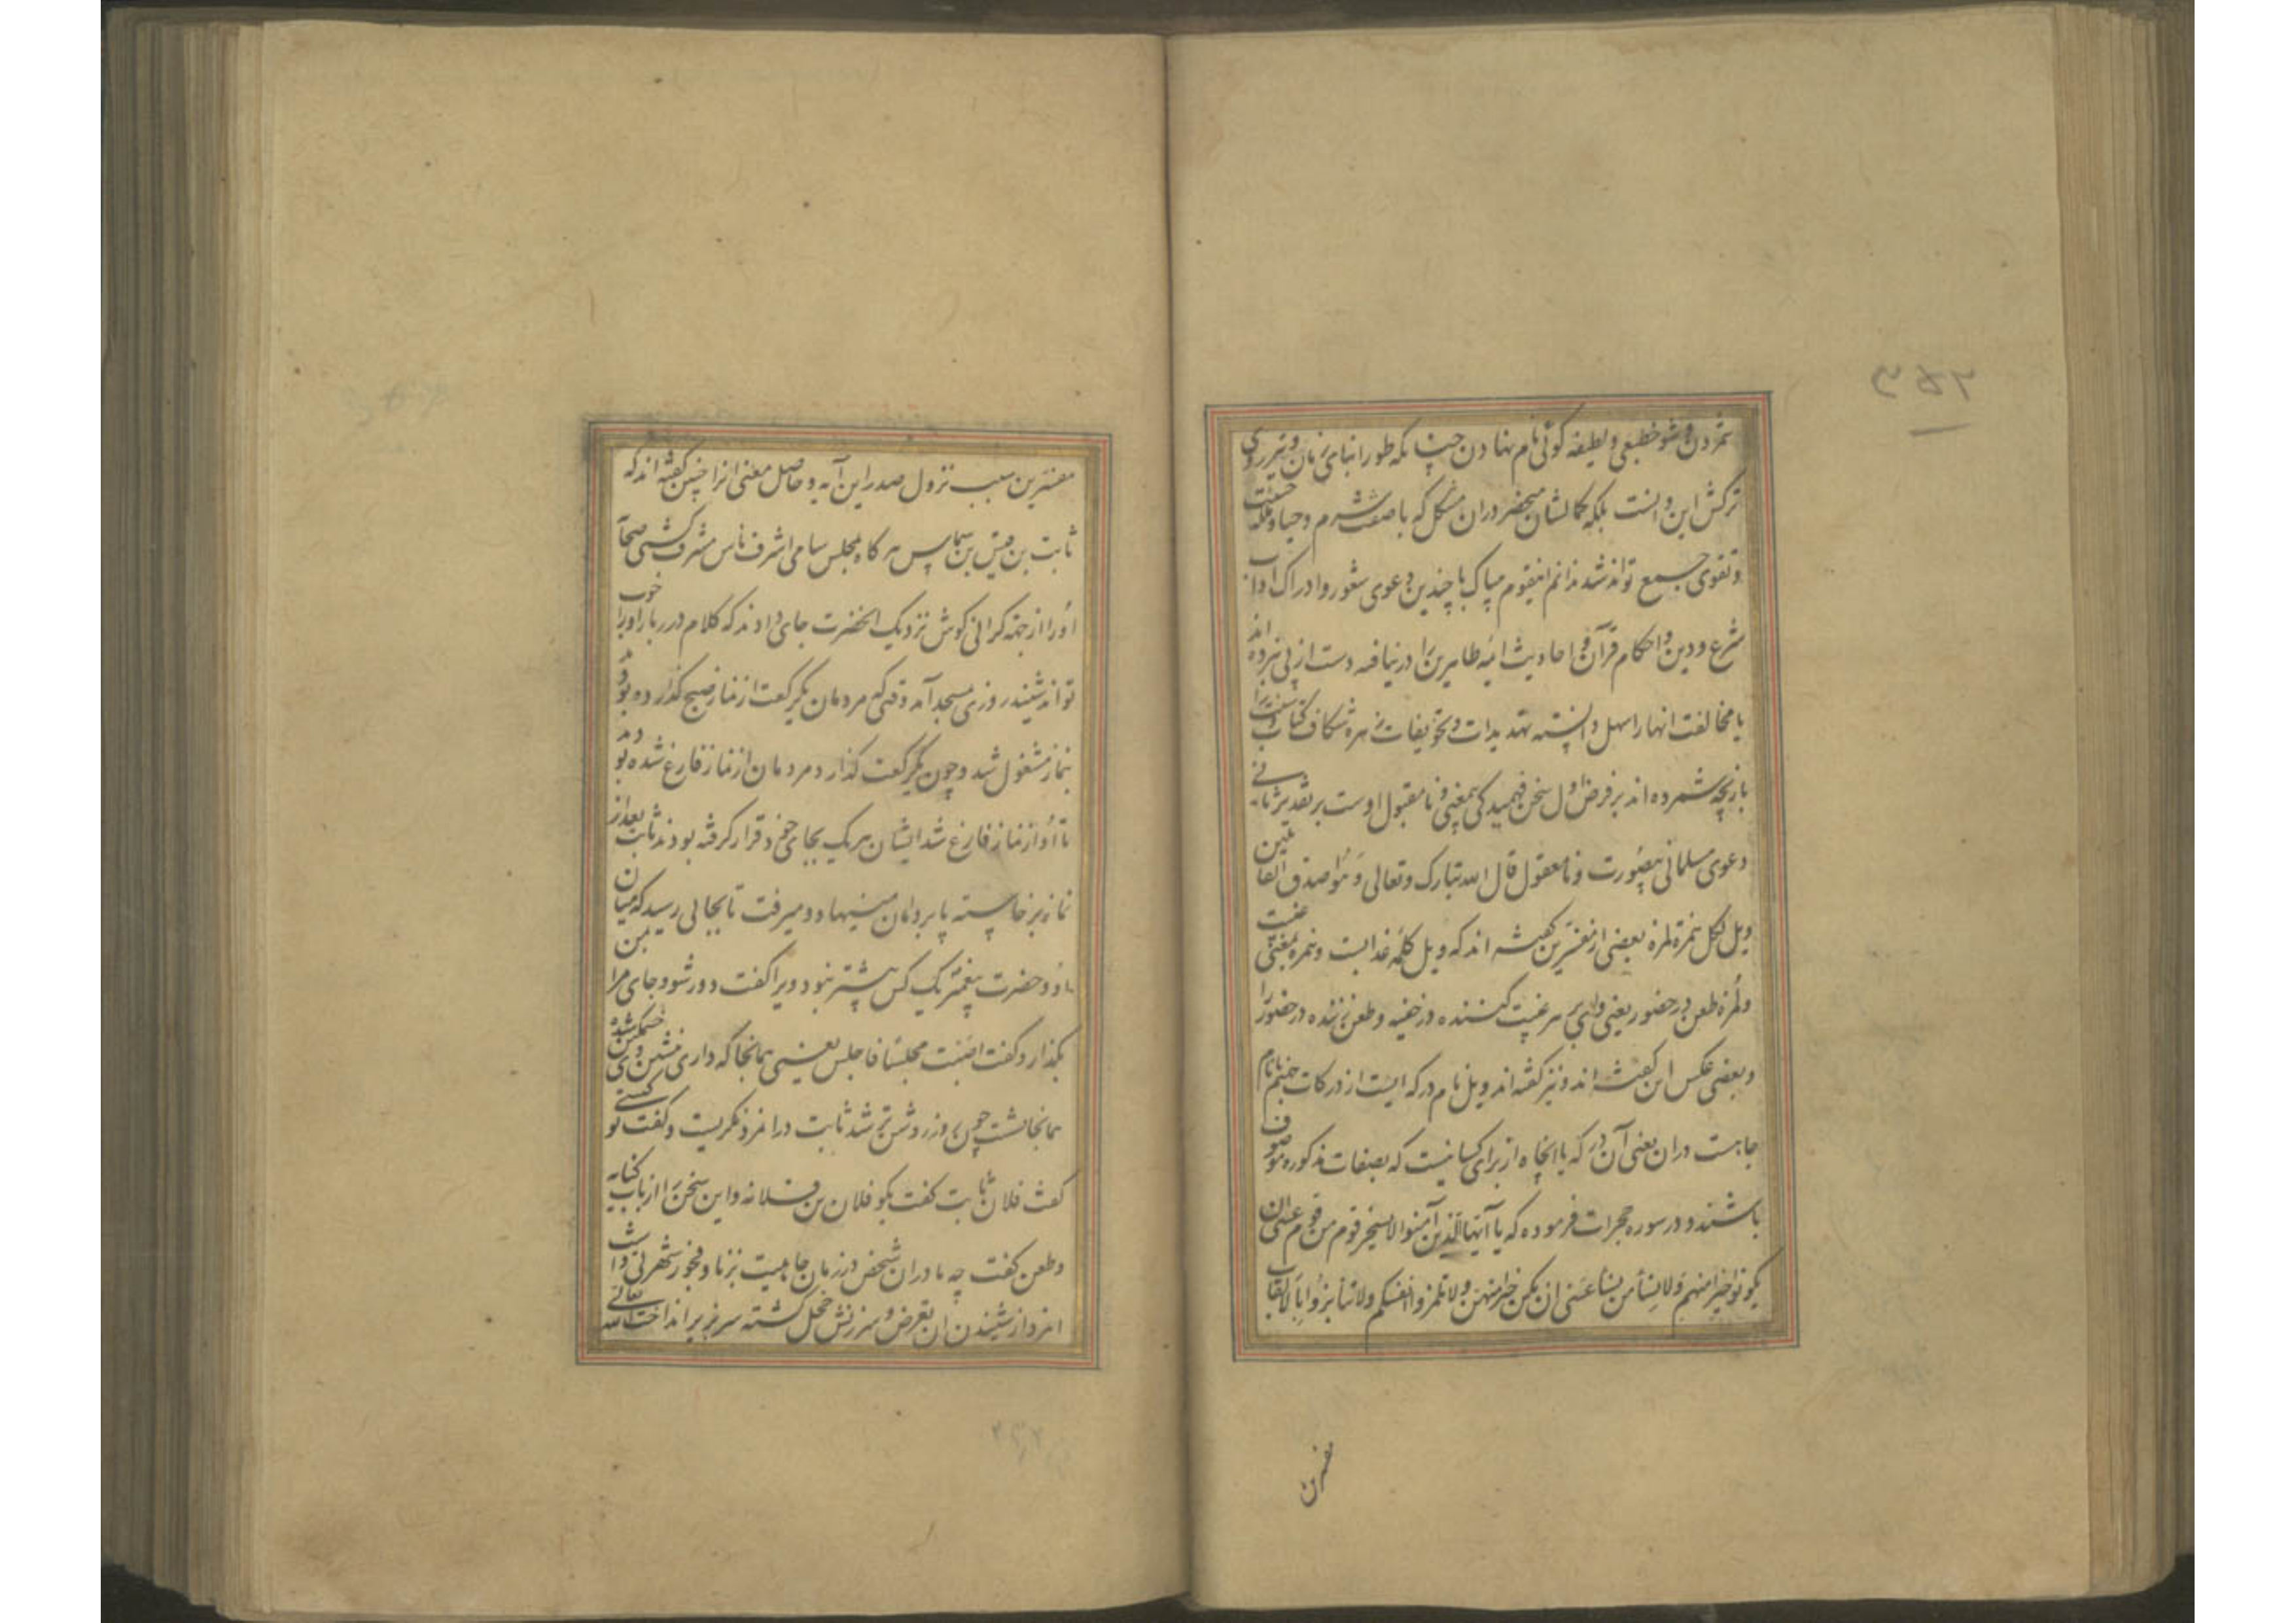 ۳۵۲
شمردن و شوخ طبعی و لطیفه گوئی نام نهادن چنانکه طور ابنای زمان
ترکش این دانست بلکه کمالشان منحصر دران مشکل که با صفت شرم و حیا و
و تقوی جمع تواند شد ندانم اینقوم بیباک با چندین دعوی شعور و ادراک اداب
شرع و دین و احکام قرآن و احادیث ائمه طاهرین را در نیافته دست از پی نبرده اند
یا مخالفت انها را سهل دانسته تهدیدات و تخویفات زهره شکاف کتاب و سنت را
بازیچه شمرده اند بر فرض اول سخن فهمیدگی بیمعنی و نامقبول اوست بر تقدیر ثانی
دعوی مسلمانی بیصورت و نامعقول قال الله تبارک و تعالی و هو اصدق القائلین
ویل لکل همزة لمزة بعضی از مفسرین گفته اند که ویل کلمه عذابست و همزه بمعنی غیبت
و لمزه طعن در حضور یعنی وای بر هر غیبت کننده در خفیه و طعن زننده در حضور را
و بعضی عکس این گفته اند و نیز گفته اند ویل نام درکه ایست از درکات جهنم یا نام
چاهست دران یعنی آن درکه یا انچاه از برای کسانیست که بصفات مذکوره موصوف
باشند و در سوره حجرات فرموده که یا آیها الذین آمنوا لا یسخر قوم من قوم عسی ان
یکونوا خیرا منهم ولا نسأ من نسأ عسی ان یکن خیرا منهن ولا تلمزوا انفسکم ولا تنابزوا بالالقاب
مفسرین
مفسرین سبب نزول صدر این آیه و حاصل معنی انرا چنین گفته اند که
ثابت بن قیس بن شماس هر گاه بمجلس سامی اشرف ناس مشرف گشتی صحآ
او را از جهة گرانی گوش نزدیک انحضرت جای دادند که کلام درربار او را خوب
تواند شنید روزی بمسجد آمد وقتی که مردمان یکرکعت از نماز صبح گذارده بودند
بنماز مشغول شد و چون یکرکعت گذارد مردمان از نماز فارغ شده بودند
تا او از نماز فارغ شد ایشان هر یک بجای خود قرار گرفته بودند ثابت بعد از
نماز برخاسته پا بر دامان مینهاد و میرفت تا بجائی رسید که میان
او و حضرت پیغمبر یک کس بیشتر نبود ویرا گفت دور شو و جای مرا بمن
بگذار و گفت اصبت مجلسا فاجلس یعنی همانجا که داری بنشین وی خشمگین شده
همانجا نشست چون روز روشن تر شد ثابت در انمرد نگریست و گفت تو کیستی
گفت فلان ثابت گفت بگو فلان بن فلانه و این سخن را از باب کنایه
و طعن گفت چه مادر ان شخص در زمان جاهلیت بزنا و فجور شهرتی داشت
انمرد از شنیدن ان تعرض و سرزنش خجل گشته سر بزیر انداخت الله تعالی